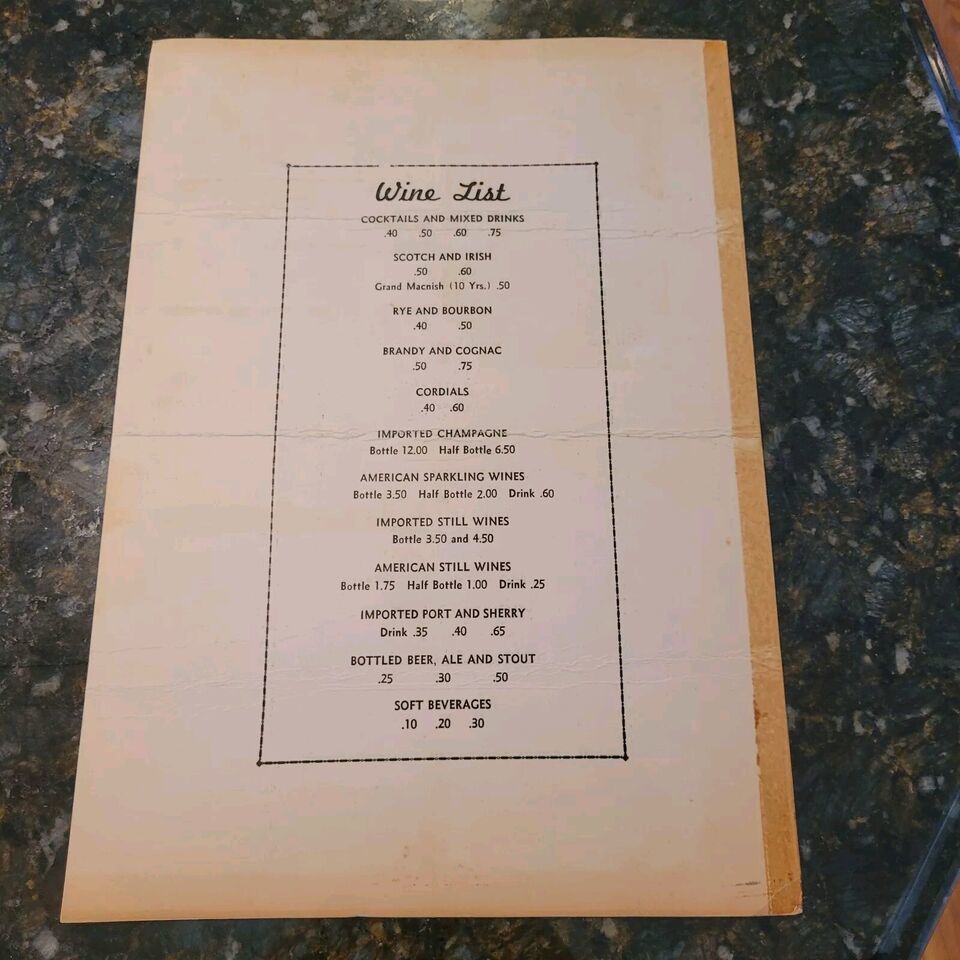 Wine List
COCKTAILS AND MIXED DRINKS
.40 .50 .60 .75
SCOTCH AND IRISH
.50 .60
Grand Macnish (10 Yrs.) .50
RYE AND BOURBON
.40 .50
BRANDY AND COGNAC
.50 .75
CORDIALS
.40 .60
IMPORTED CHAMPAGNE
Bottle 12.00 Half Bottle 6.50
AMERICAN SPARKLING WINES
Bottle 3.50 Half Bottle 2.00 Drink .60
IMPORTED STILL WINES
Bottle 3.50 and 4.50
AMERICAN STILL WINES
Bottle 1.75 Half Bottle 1.00 Drink .25
IMPORTED PORT AND SHERRY
Drink .35 .40 .65
BOTTLED BEER, ALE AND STOUT
.25 .30 .50
SOFT BEVERAGES
.10 .20 .30